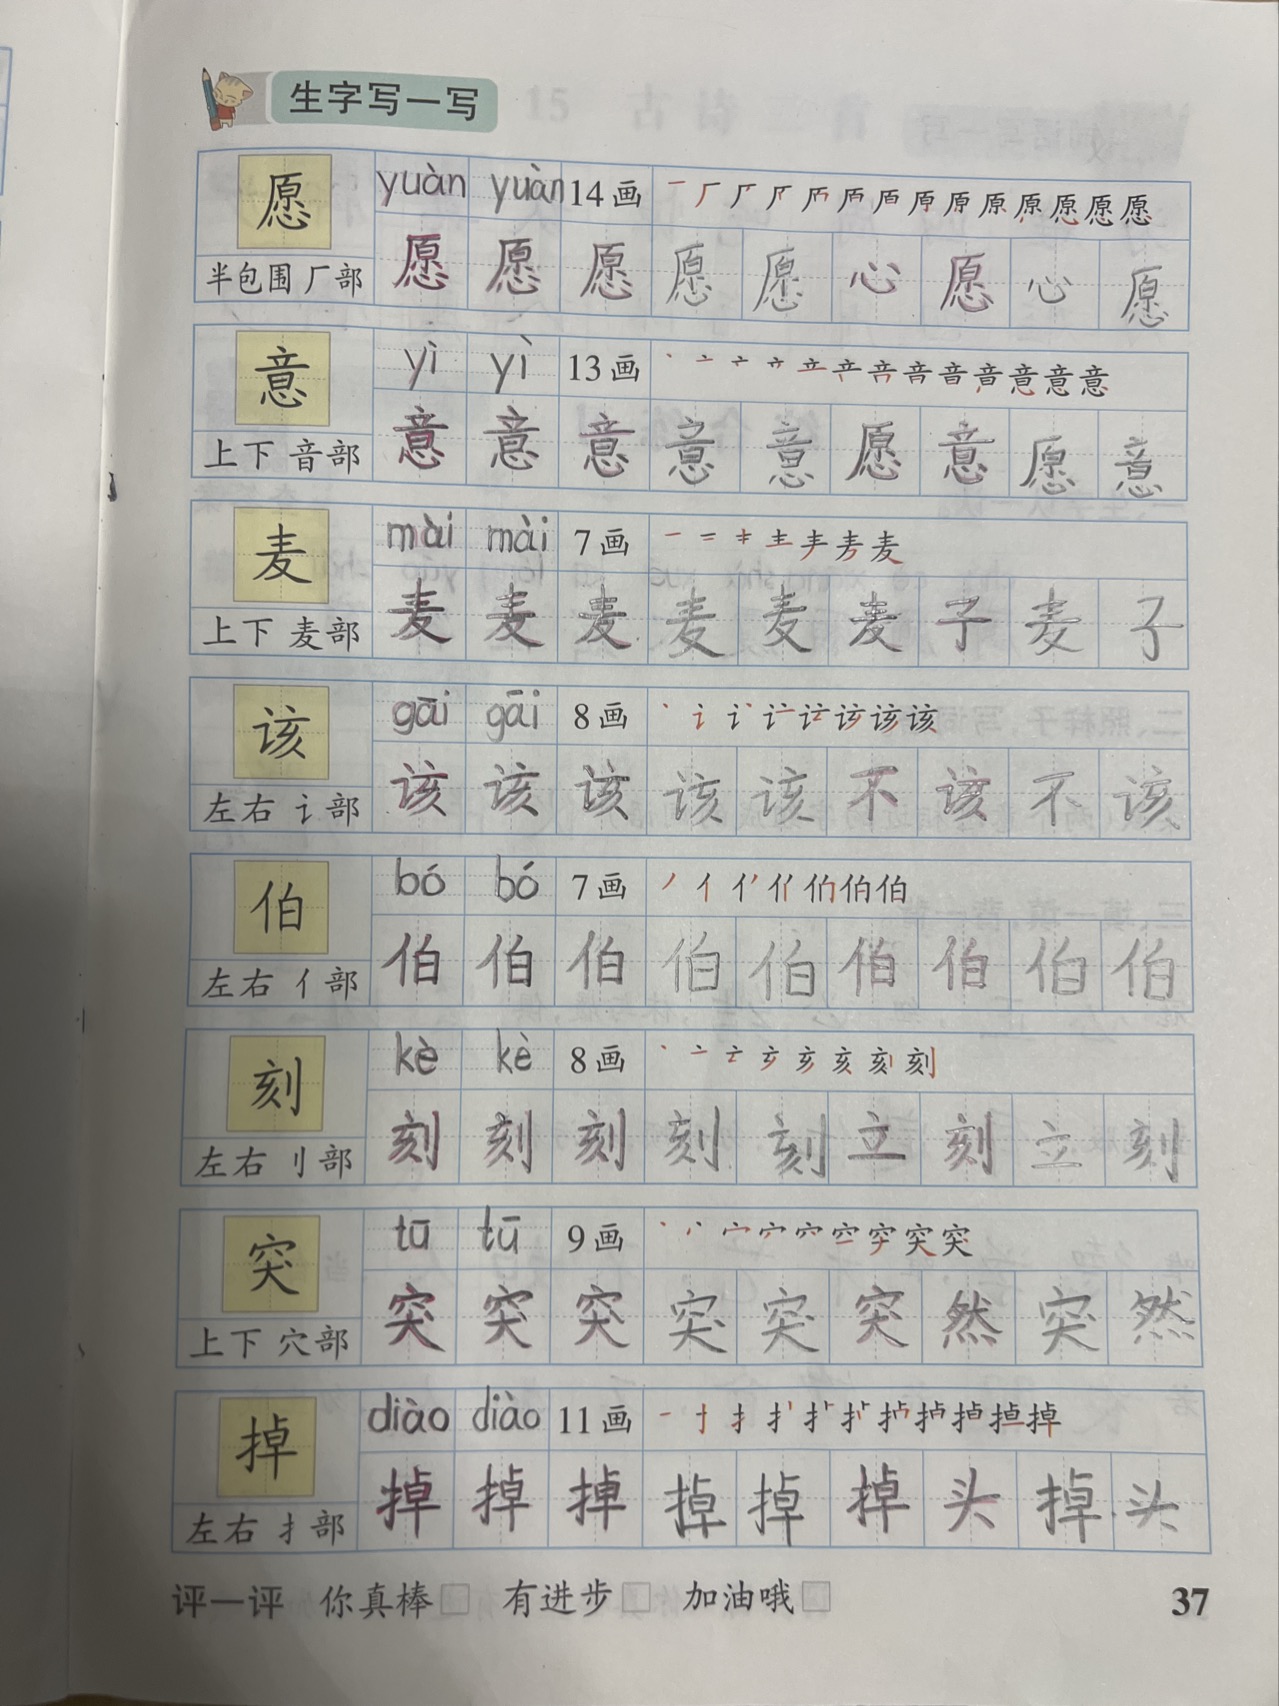 生字写一写
愿 yuàn yuàn 14画 一 厂 厂 厂 厉 盾 盾 原 原 原 原 愿 愿 愿
半包围 厂部 愿 愿 愿 愿 愿 心 愿 心 愿
意 yì yì 13画 丶 亠 亠 立 立 产 音 音 音 音 意 意 意
上下 音部 意 意 意 意 意 愿 意 愿 意
麦 mài mài 7画 一 二 キ 主 丰 麦 麦
上下 麦部 麦 麦 麦 麦 麦 麦 子 麦 子
该 gāi gāi 8画 丶 讠 讠 讠 讠 该 该 该
左右 讠部 该 该 该 该 该 不 该 不 该
伯 bó bó 7画 丿 亻 亻 亻 伯 伯 伯
左右 亻部 伯 伯 伯 伯 伯 伯 伯 伯 伯
刻 kè kè 8画 丶 亠 亠 亥 亥 亥 刻 刻
左右 刂部 刻 刻 刻 刻 刻 立 刻 立 刻
突 tū tū 9画 丶 丷 宀 宀 穴 空 突 突 突
上下 穴部 突 突 突 突 突 突 然 突 然
掉 diào diào 11画 一 扌 扌 扌 扌 扌 掉 掉 掉 掉 掉
左右 扌部 掉 掉 掉 掉 掉 掉 头 掉 头
评一评 你真棒 有进步 加油哦 37